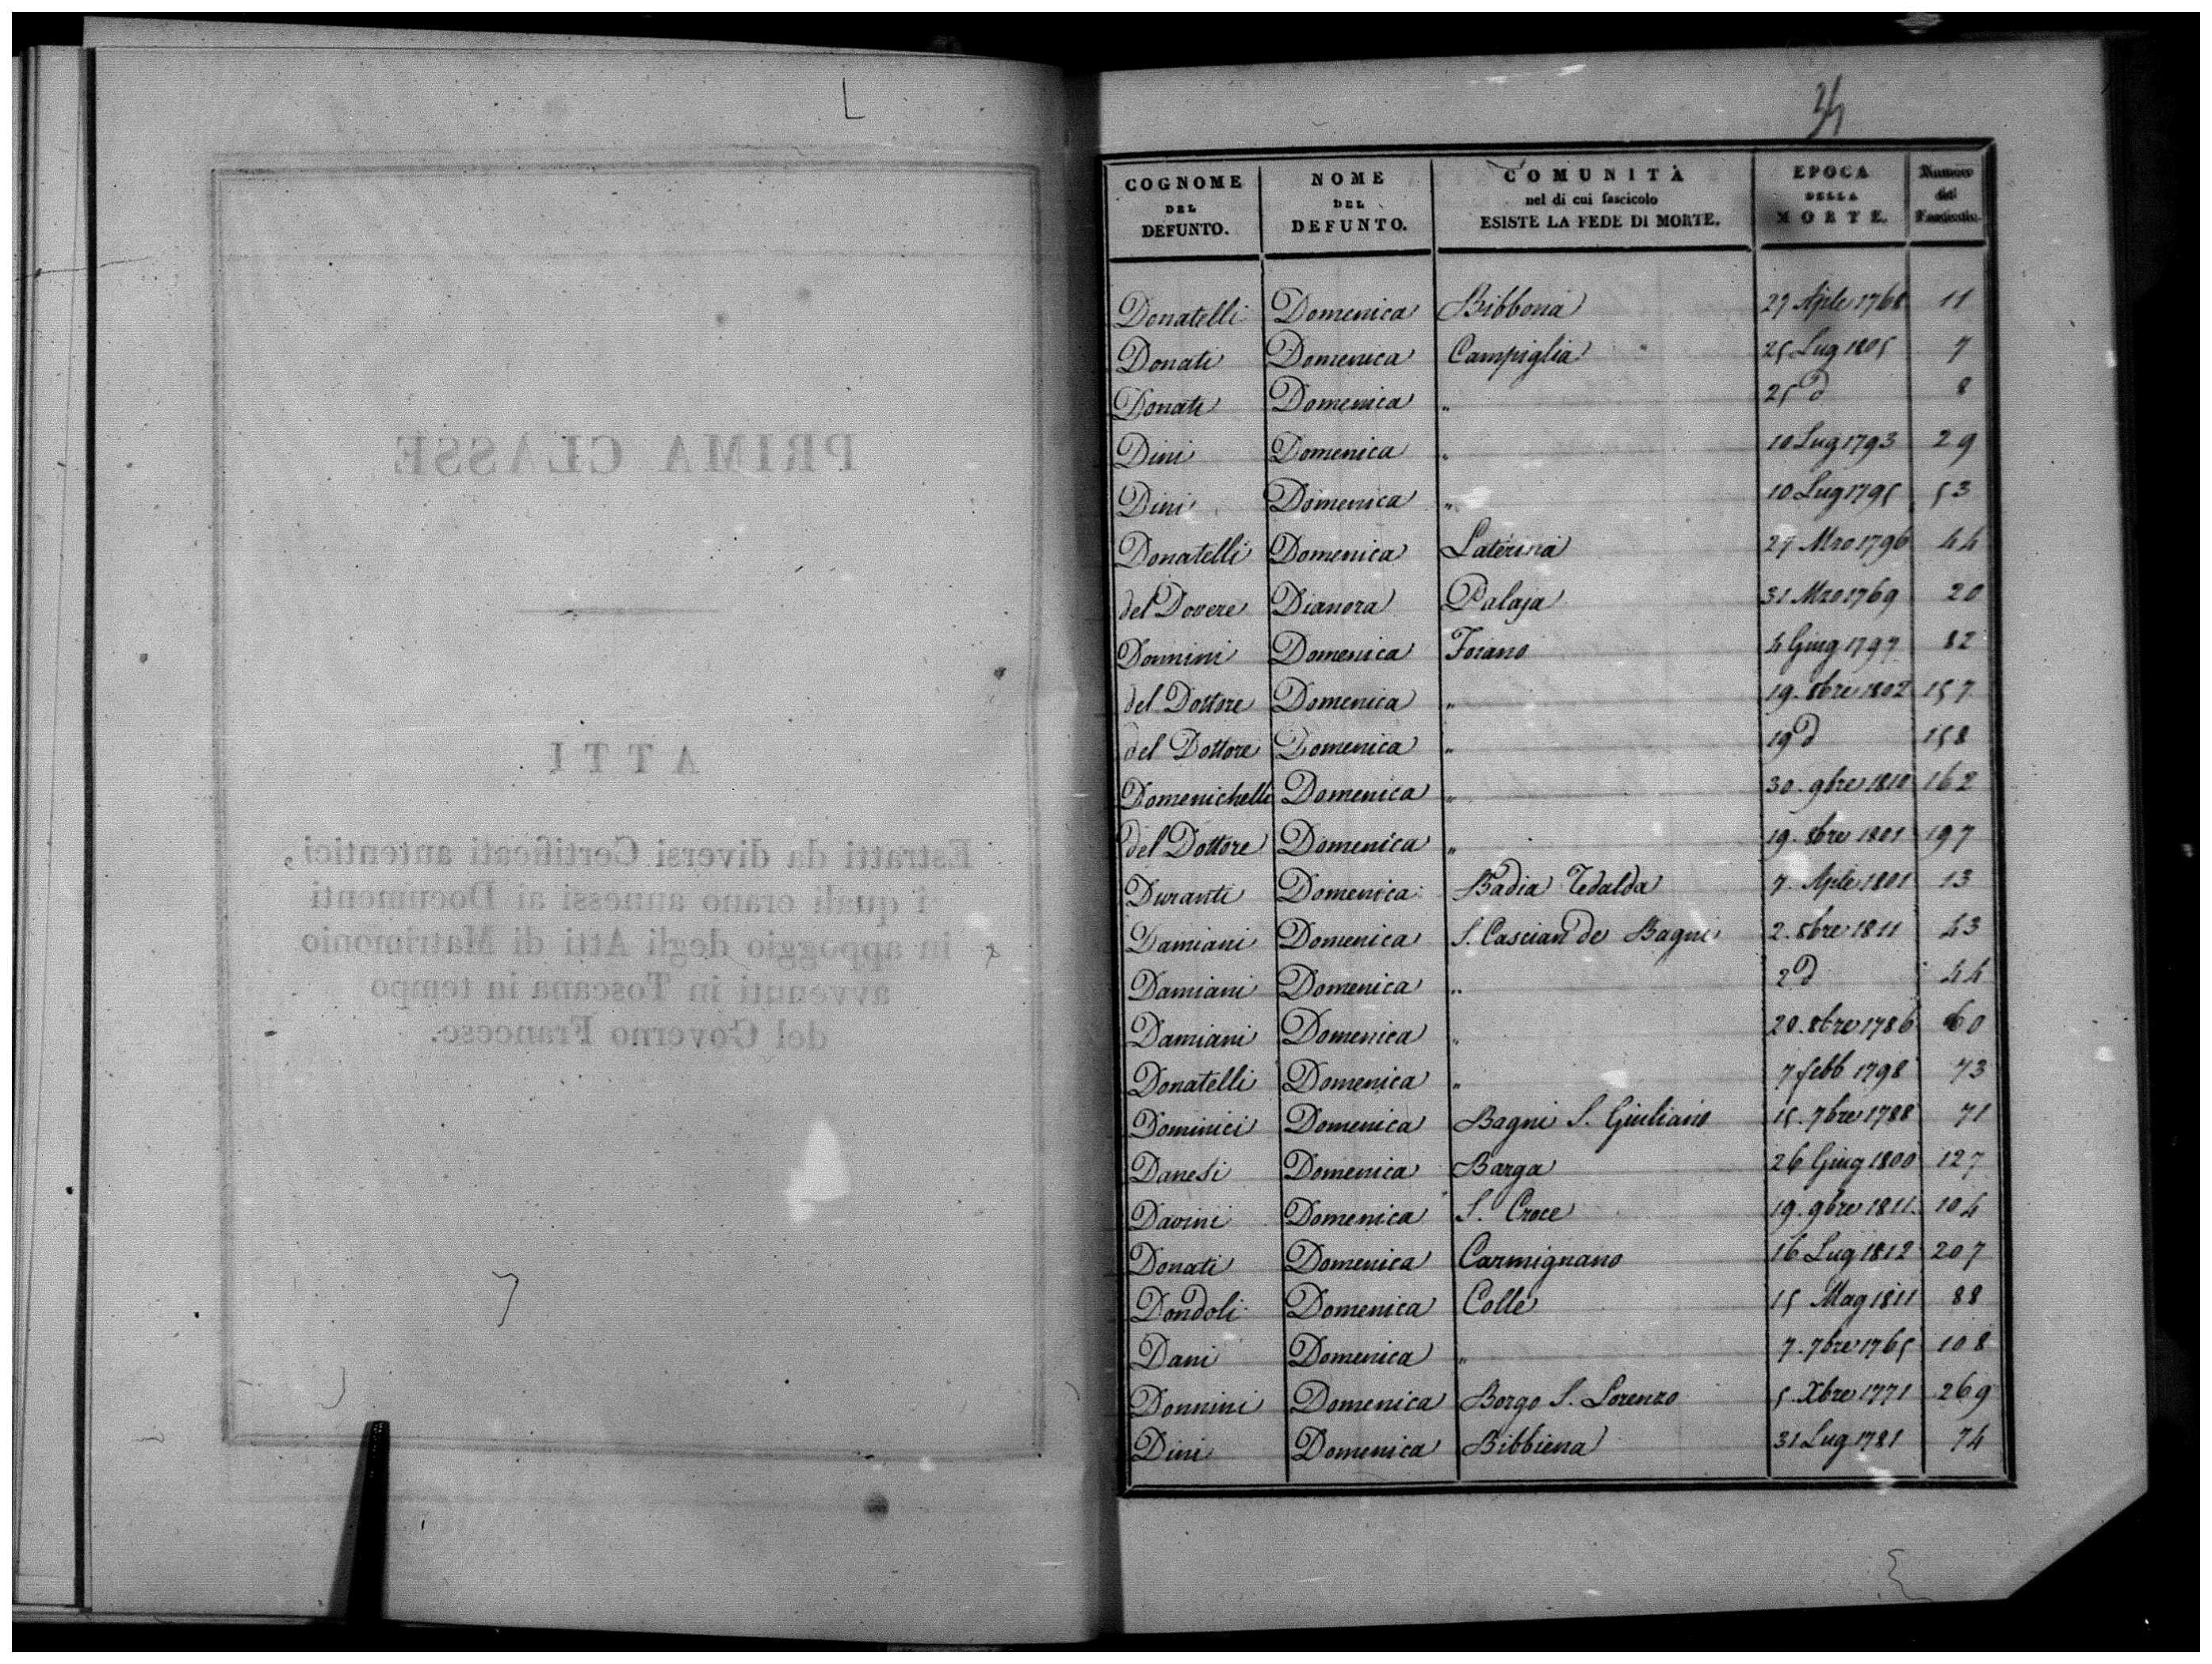 PRIMA CLASSE
ATTI
Estratti da diversi Certificati autentici,
i quali erano annessi ai Documenti
in appoggio degli Atti di Matrimonio
avvenuti in Toscana in tempo
del Governo Francese.
COGNOME DEL DEFUNTO. NOME DEL DEFUNTO. COMUNITÀ nel di cui fascicolo ESISTE LA FEDE DI MORTE. EPOCA DELLA MORTE. Numero del Fascicolo.
Donatelli Domenica Bibbona 27 Aple 1768 11
Donati Domenica Campiglia 25 Lug 1805 7
Donati Domenica " 25 d 8
Dini Domenica " 10 Lug 1793 29
Dini Domenica " 10 Lug 1795 53
Donatelli Domenica Laterina 27 Mzo 1796 44
del Dovere Dianora Palaja 31 Mzo 1769 20
Donnini Domenica Foiano 4 Giug 1797 82
del Dottore Domenica " 19. 8bre 1802 157
del Dottore Domenica " 19 d 158
Domenichelli Domenica " 30. 9bre 1810 162
del Dottore Domenica " 19. 8bre 1801 197
Duranti Domenica Badia Tedalda 7. Aple 1801 13
Damiani Domenica S. Cascian de Bagni 2. 8bre 1811 43
Damiani Domenica " 2 d 44
Damiani Domenica " 20. 8bre 1786 60
Donatelli Domenica " 7 febb 1798 73
Dominici Domenica Bagni S. Giuliano 15. 7bre 1788 71
Danesi Domenica Barga 26 Giug 1800 127
Davini Domenica S. Croce 19. 9bre 1811. 104
Donati Domenica Carmignano 16 Lug 1812 207
Dondoli Domenica Colle 15 Mag 1811 88
Dani Domenica " 7. 7bre 1765 108
Donnini Domenica Borgo S. Lorenzo 5. Xbre 1771 269
Dini Domenica Bibbiena 31 Lug 1781 74